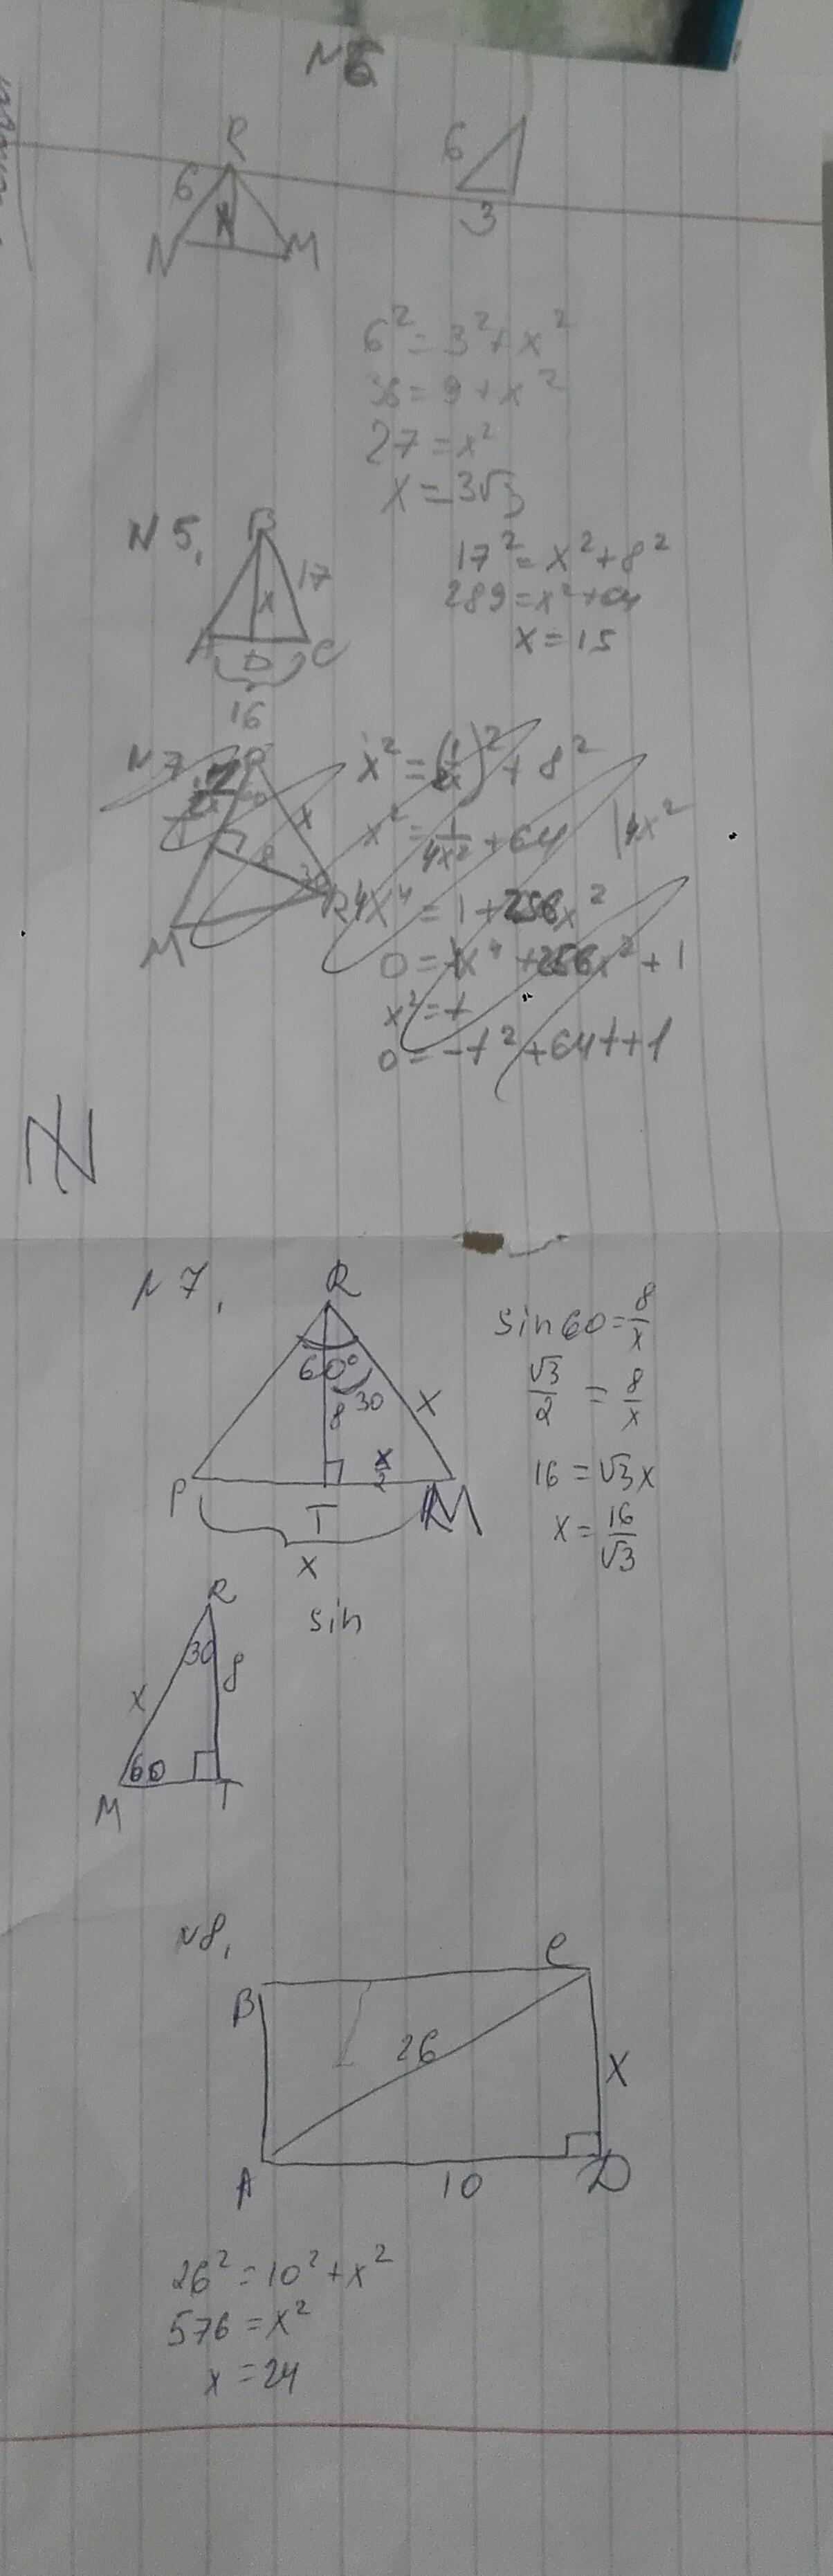 N6
R
6
x
N
M
6
3
6² = 3² + x²
36 = 9 + x²
27 = x²
x = 3√3
N 5.
B
17
x
A
D
C
16
17² = x² + 8²
289 = x² + 64
x = 15
N 7
x
8
30
M
R
x² = (1/2x)² + 8²
x² = 1/4x² + 64 |4x²
4x⁴ = 1 + 256x²
0 = -4x⁴ + 256x² + 1
x² = t
0 = -t² + 64t + 1
N
N 7.
R
60°
30
8
x
x/2
P
T
M
x
sin60 = 8/x
√3/2 = 8/x
16 = √3x
x = 16/√3
sin
R
30
8
x
60
M
T
N8.
B
C
26
x
A
10
D
26² = 10² + x²
576 = x²
x = 24